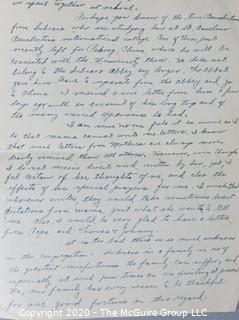 we spent together at school.
Perhaps you know of the two Benedictines
from Subiaco who are studying here at St. Anselm
Benedictine international college. One of them just
recently left for Peking, China where he will be
connected with the University there. He does not
belong to the Subiaco abbey any longer. The abbot
gave him leave to separate from the abbey and go
to China. I received a letter from him a few
days ago with an account of his long trip and of
the many varied experiences he had.
I am sure no one feels it as much as I
do that mama cannot write me letters. I know
that such letters from Mothers are always more
dearly received than all others. However, even though
I do not receive direct word written by her, yet I
feel certain of her thoughts of me, and also the
effects of her special prayers for me. I wish that
whoever writes, they would take sometimes direct
dictations from mama, just what she wants to tell
me. Also, I would be very glad to have a letter
from Papa and Thomas & Johnny.
It is too bad there is so much sickness
in the congregation. Sickness in a family is one of
the greatest misfortunes the family can suffer, and
especially at such times as are existing at present.
We, our family has every reason to be thankful
for our good fortune in this regard.
Copyright 2020 - The McGuire Group LLC